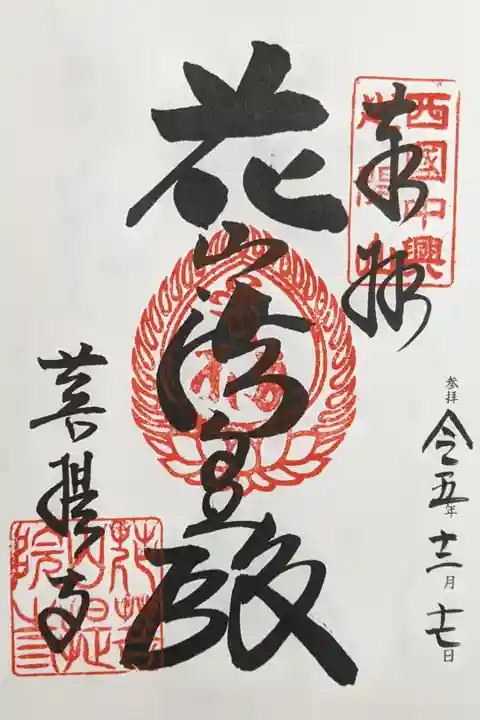 西國中興
奉拝
花山法皇殿
菩提寺
参拝 令五年 十二月 十七日